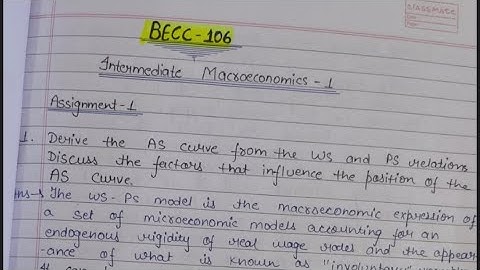 CLASSMATE
BECC-106
Intermediate Macroeconomics-1
Assignment-1
1. Derive the AS curve from the WS and PS relations
Discuss the factors that influence the position of the
AS curve.
Ans→ The WS-PS model is the macroeconomic expression of
a set of microeconomic models accounting for an
endogenous rigidity of real wage rates and the appear
-ance of what is known as "involuntary"